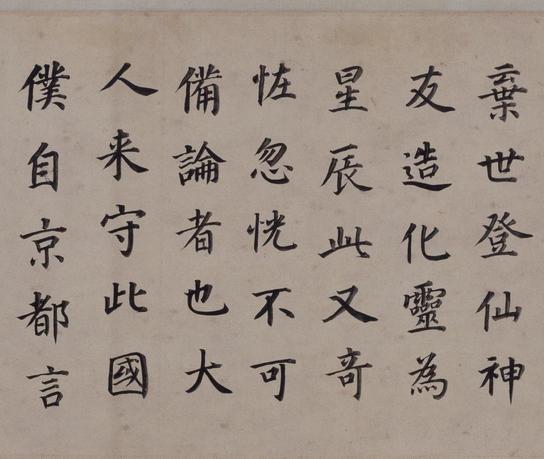 棄世登仙神
友造化靈為
星辰此又奇
恠忽恍不可
備論者也大
人来守此國
僕自京都言